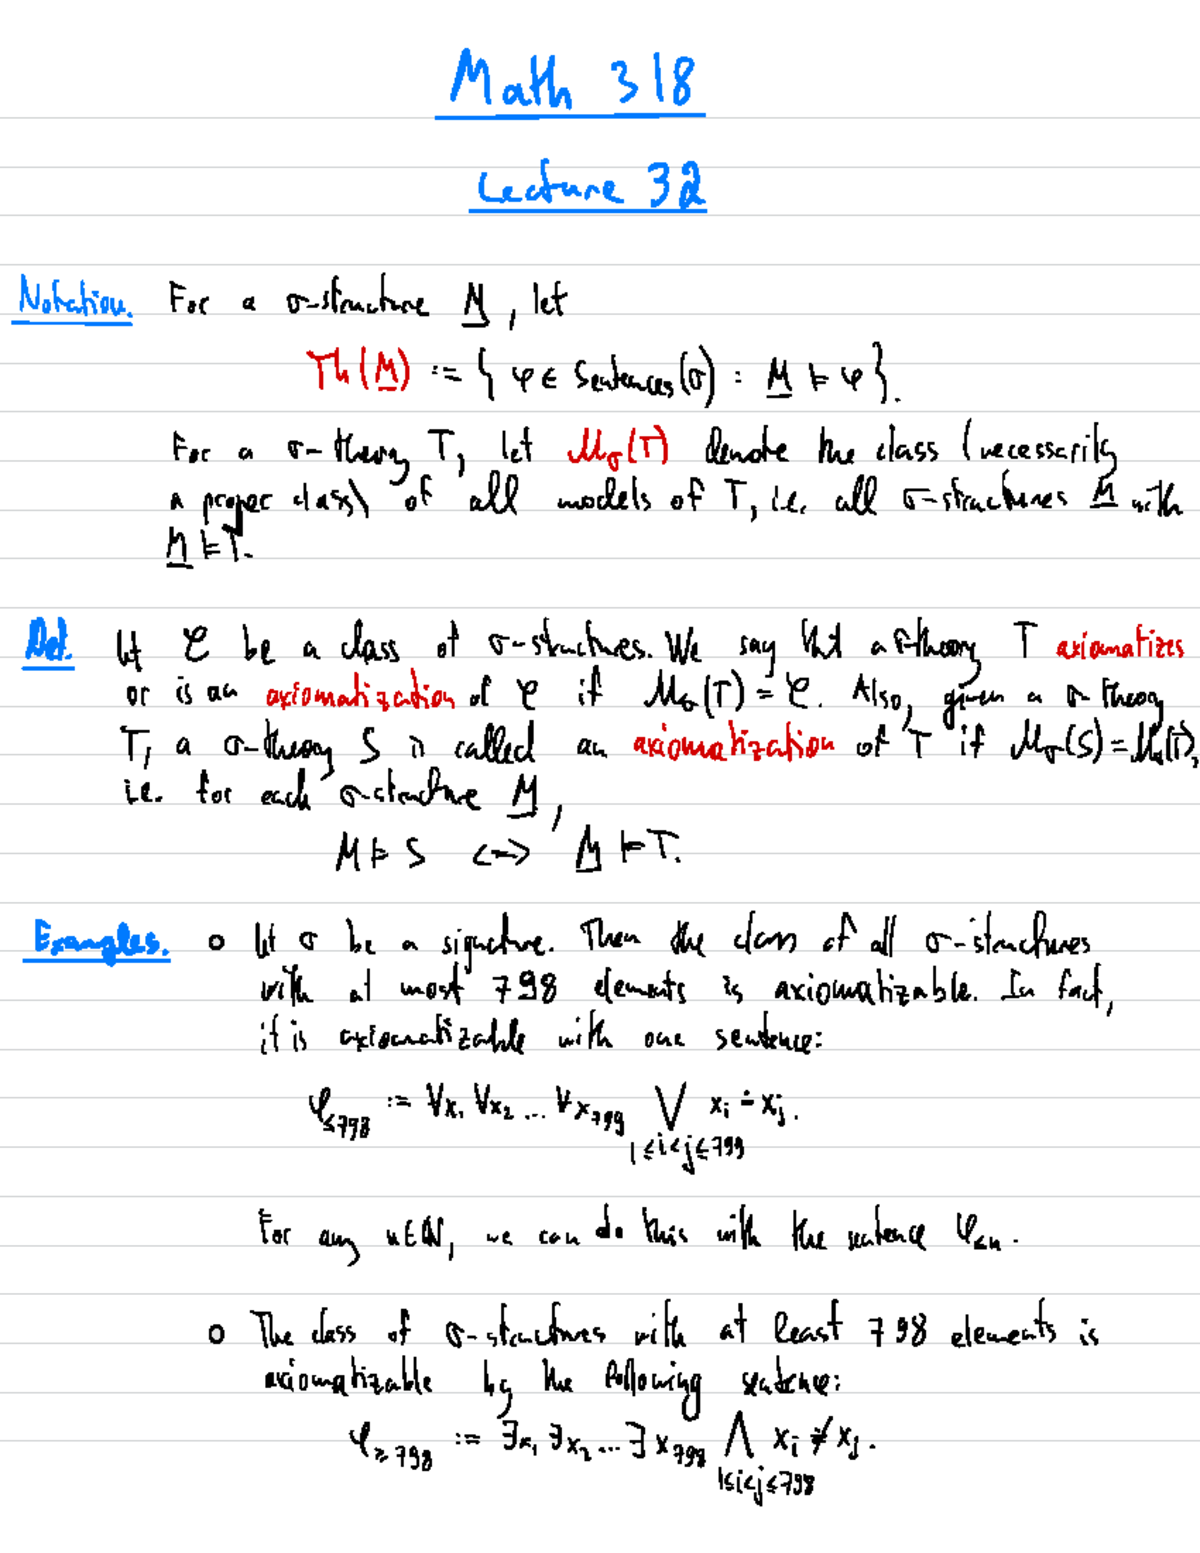 Math 318
Lecture 32
Notation. For a σ-structure M̲, let
Th(M̲) := { φ ∈ Sentences(σ) : M̲ ⊨ φ }.
For a σ-theory T, let ℳ_σ(T) denote the class (necessarily
a proper class) of all models of T, i.e. all σ-structures M̲ with
M̲ ⊨ T.
Def. Let 𝒞 be a class of σ-structures. We say that a σ-theory T axiomatizes
or is an axiomatization of 𝒞 if ℳ_σ(T) = 𝒞. Also, given a σ-theory
T, a σ-theory S is called an axiomatization of T if ℳ_σ(S) = ℳ_σ(T),
i.e. for each σ-structure M̲,
M ⊨ S <-> M̲ ⊨ T.
Examples. o Let σ be a signature. Then the class of all σ-structures
with at most 798 elements is axiomatizable. In fact,
it is axiomatizable with one sentence:
φ_≤798 := ∀x₁ ∀x₂ ... ∀x_799 ⋁_{1≤i<j≤799} x_i ≐ x_j.
For any n∈ℕ, we can do this with the sentence φ_≤n.
o The class of σ-structures with at least 798 elements is
axiomatizable by the following sentence:
φ_≥798 := ∃x₁ ∃x₂ ... ∃x_798 ⋀_{1≤i<j≤798} x_i ≠ x_j.